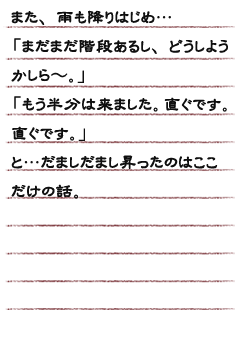 また、雨も降りはじめ…
「まだまだ階段あるし、どうしよう
かしら～。」
「もう半分は来ました。直ぐです。
直ぐです。」
と…だましだまし昇ったのはここ
だけの話。